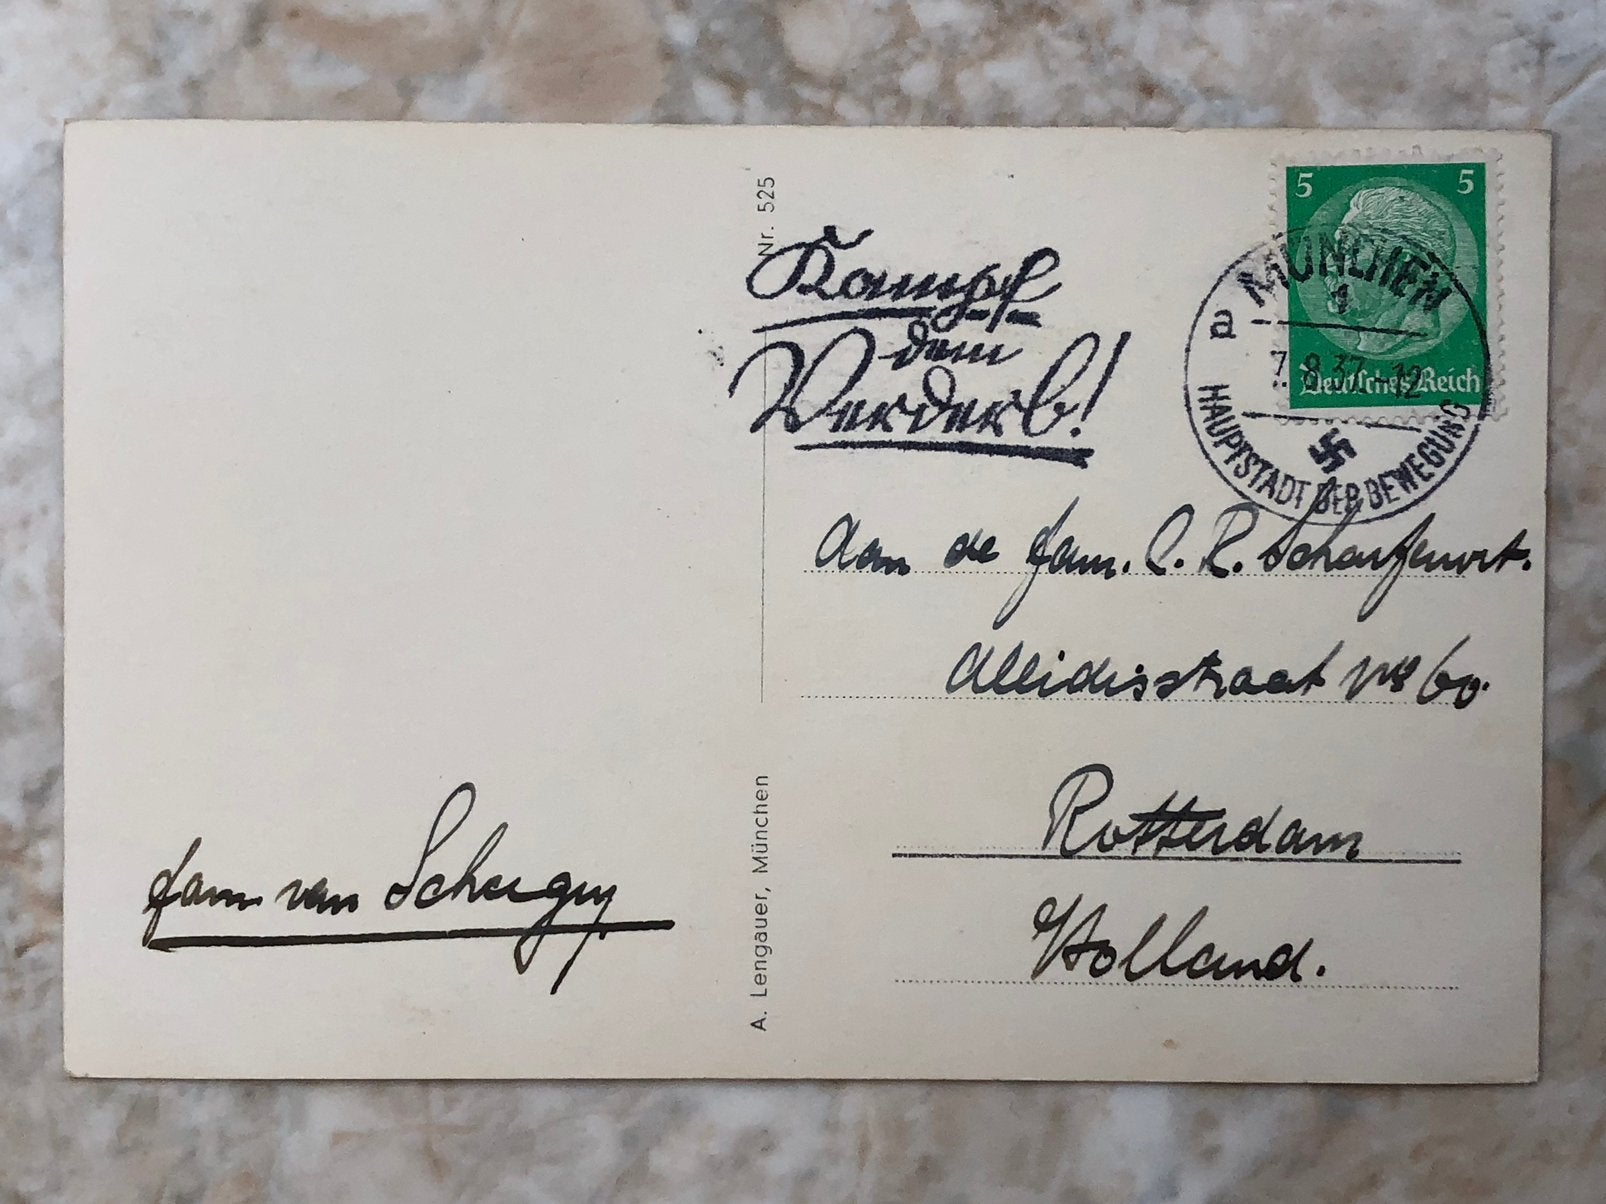 Nr. 525
Kampf
dem
Verderb!
5 5
Deutsches Reich
MÜNCHEN
1
a
7.8.37.-12
HAUPTSTADT DER BEWEGUNG
Aan de fam. C. R.
No 60.
Rotterdam
Holland.
fam van
A. Lengauer, München